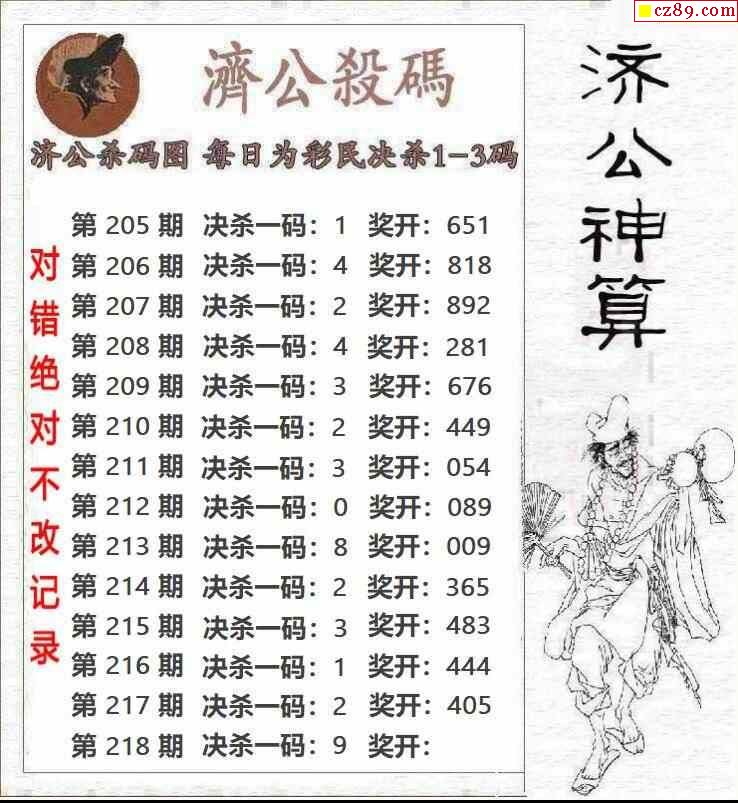 cz89.com
濟公殺碼
济公杀码图 每日为彩民决杀1-3码
第 205 期 决杀一码：1 奖开：651
第 206 期 决杀一码：4 奖开：818
第 207 期 决杀一码：2 奖开：892
第 208 期 决杀一码：4 奖开：281
第 209 期 决杀一码：3 奖开：676
第 210 期 决杀一码：2 奖开：449
第 211 期 决杀一码：3 奖开：054
第 212 期 决杀一码：0 奖开：089
第 213 期 决杀一码：8 奖开：009
第 214 期 决杀一码：2 奖开：365
第 215 期 决杀一码：3 奖开：483
第 216 期 决杀一码：1 奖开：444
第 217 期 决杀一码：2 奖开：405
第 218 期 决杀一码：9 奖开：
对错绝对不改记录
济公神算